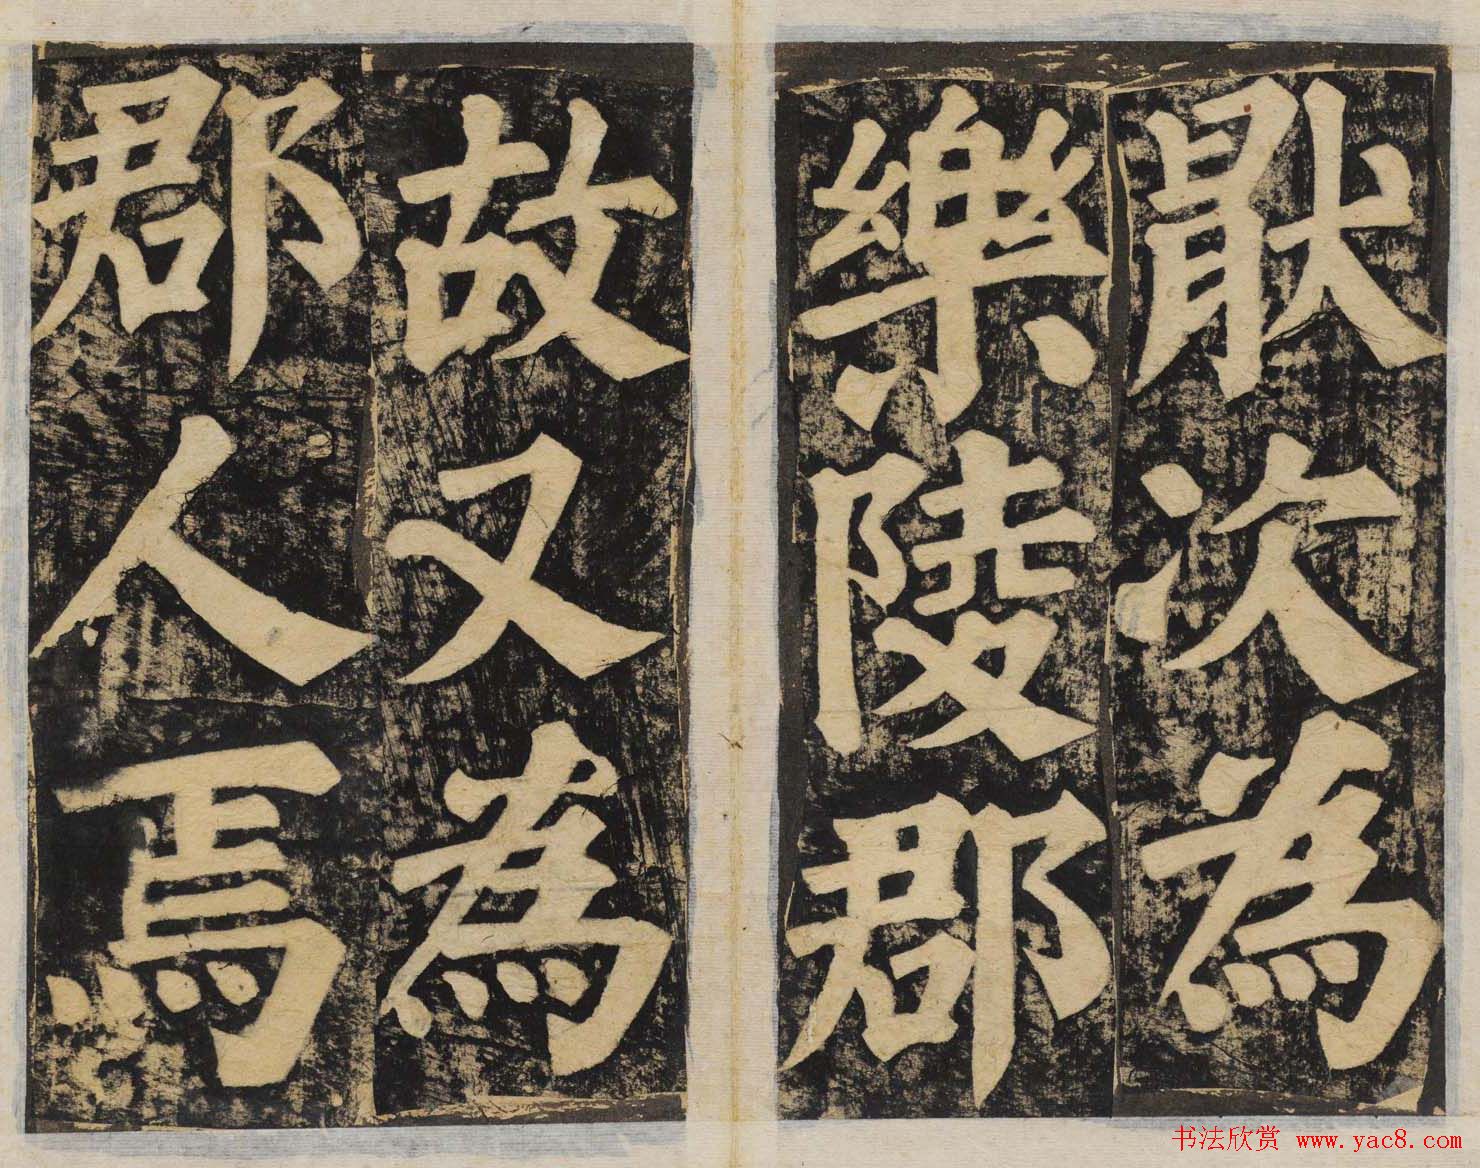 猒次為
樂陵郡
故又為
郡人焉
书法欣赏 www.yac8.com